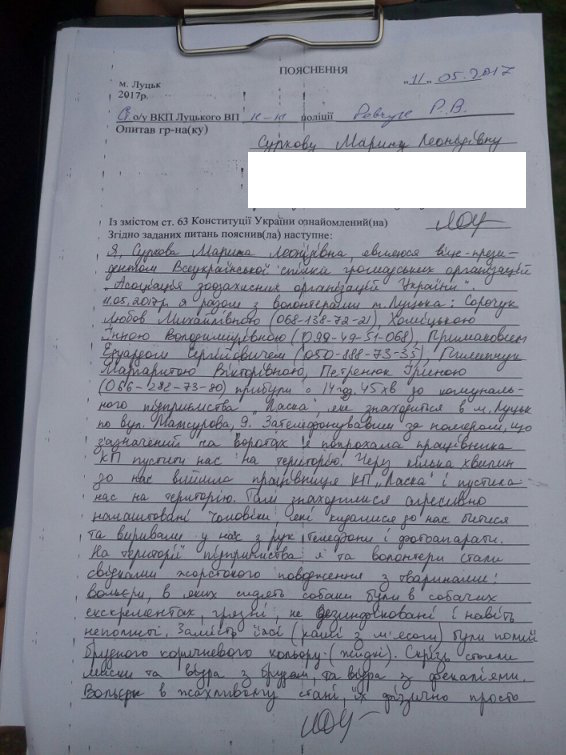 ПОЯСНЕННЯ
м. Луцьк
„11" 05.2017
2017р.
о/у ВКП Луцького ВП поліції Р.В.
Опитав гр-на(ку)
Суркову Марину Леонідівну
Із змістом ст. 63 Конституції України ознайомлений(на)
Згідно заданих питань пояснив(ла) наступне:
Я, Суркова Марина Леонідівна, являюся віце-прези-
дентом Всеукраїнської спілки громадських організацій
„Асоціація зоозахисних організацій України".
11.05.2017р. я разом з волонтерами м. Луцька: Сорочук
Любов Михайлівною (068-138-72-21), Хомицькою
Інною Володимирівною (099-49-51-068), Примаковем
Едуардом Сергійовичем (050-888-73-35), Пилипчук
Маргаритою Вікторівною, Петренюк Іриною
(066-282-73-80) прибули о 14 год. 45 хв до комуналь-
ного підприємства „Ласка", яке знаходиться в м. Луцьк
по вул. Мамсурова, 9. Зателефонувавши за номером, що
зазначений на воротах я попрохала працівника
КП пустити нас на територію. Через кілька хвилин
до нас вийшла працівниця КП „Ласка" і пустила
нас на територію. Там знаходилися агресивно
налаштовані чоловіки, які кидалися до нас битися
та виривали у нас з рук телефони і фотоапарати.
На території підприємства я та волонтери стали
свідками жорстокого поводження з тваринами:
вольєри, в яких сидять собаки були в собачих
екскрементах, грязні, не дезинфіковані і навіть
неполиті. Замість їжі (каші з м'ясом) були помиї
брудного коричневого кольору (жидкі). Скрізь стояли
миски та відра з брудом, та відра з фекаліями.
Вольєри в жахливому стані, їх фізично просто